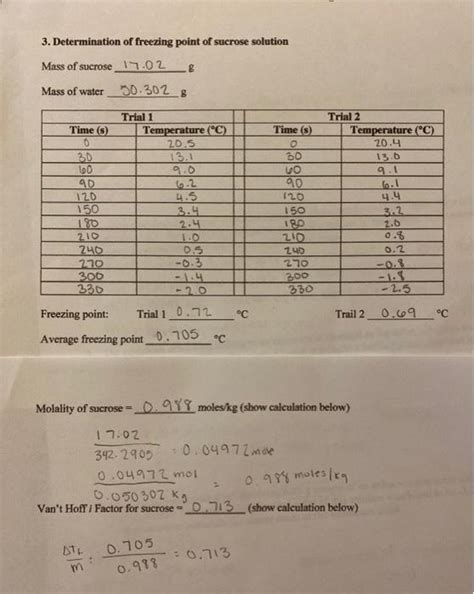 3. Determination of freezing point of sucrose solution
Mass of sucrose 17.02 g
Mass of water 50.302 g
Trial 1 Trial 2
Time (s) Temperature (°C) Time (s) Temperature (°C)
0 20.5 0 20.4
30 13.1 30 13.0
60 9.0 60 9.1
90 6.2 90 6.1
120 4.5 120 4.4
150 3.4 150 3.2
180 2.4 180 2.0
210 1.0 210 0.8
240 0.5 240 0.2
270 -0.3 270 -0.8
300 -1.4 300 -1.8
330 -2.0 330 -2.5
Freezing point: Trial 1 0.72 °C Trail 2 0.69 °C
Average freezing point 0.705 °C
Molality of sucrose = 0.988 moles/kg (show calculation below)
17.02
342.2905 = 0.04972 mole
0.04972 mol
0.050302 kg = 0.988 moles/kg
Van't Hoff i Factor for sucrose = 0.713 (show calculation below)
ΔTf
m = 0.705
0.988 = 0.713